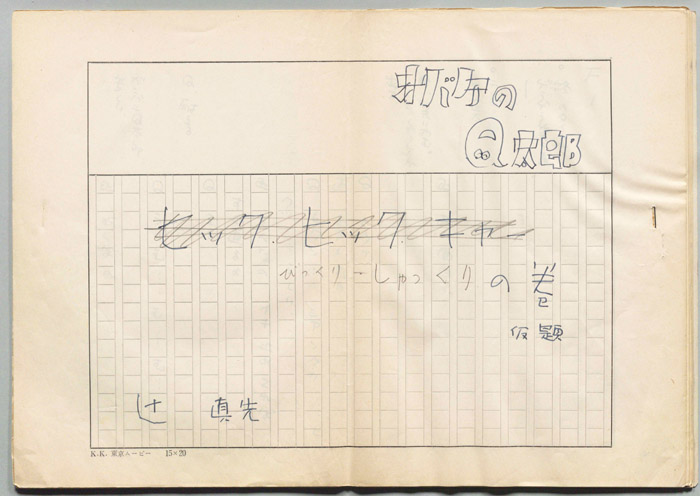 オバケの
Q太郎
ヒック.ヒック.キャー
びっくりーしゃっくりの巻
仮題
辻 真先
K.K. 東京ムービー 15×20